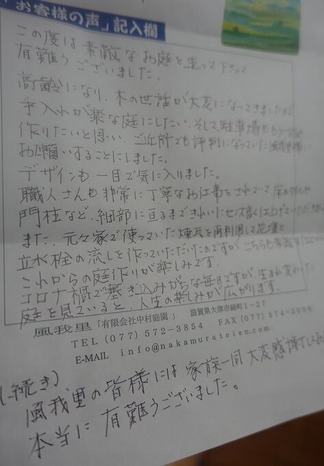 「お客様の声」記入欄
この度は素敵なお庭を造って下さって
有難うございました。
高齢になり、木の世話が大変になってきましたので
手入れが楽な庭にしたい、そして駐車場も
作りたいと思い、ご近所でも評判になっていた風我里様に
お願いすることにしました。
デザインも一目で気に入りました。
職人さんも非常に丁寧なお仕事をされていて、
門柱など、細部に亘るまできれいにセンス良く仕上げて
また、元々家で使っていた煉瓦を再利用して花壇と
立水栓の流しを作っていただけたのですが、こちらも
これからの庭作りが楽しみです。
コロナ禍で塞ぎ込みがちな毎日ですが、生まれ変わった
庭を見ていると、人生の楽しみが広がります。
風我里「有限会社中村庭園」 滋賀県大津市
TEL (077) 572-3854 FAX (077) 574
E-MAIL info@nakamurateien.com
(続き)
風我里の皆様には家族一同大変感謝して
本当に有難うございました。